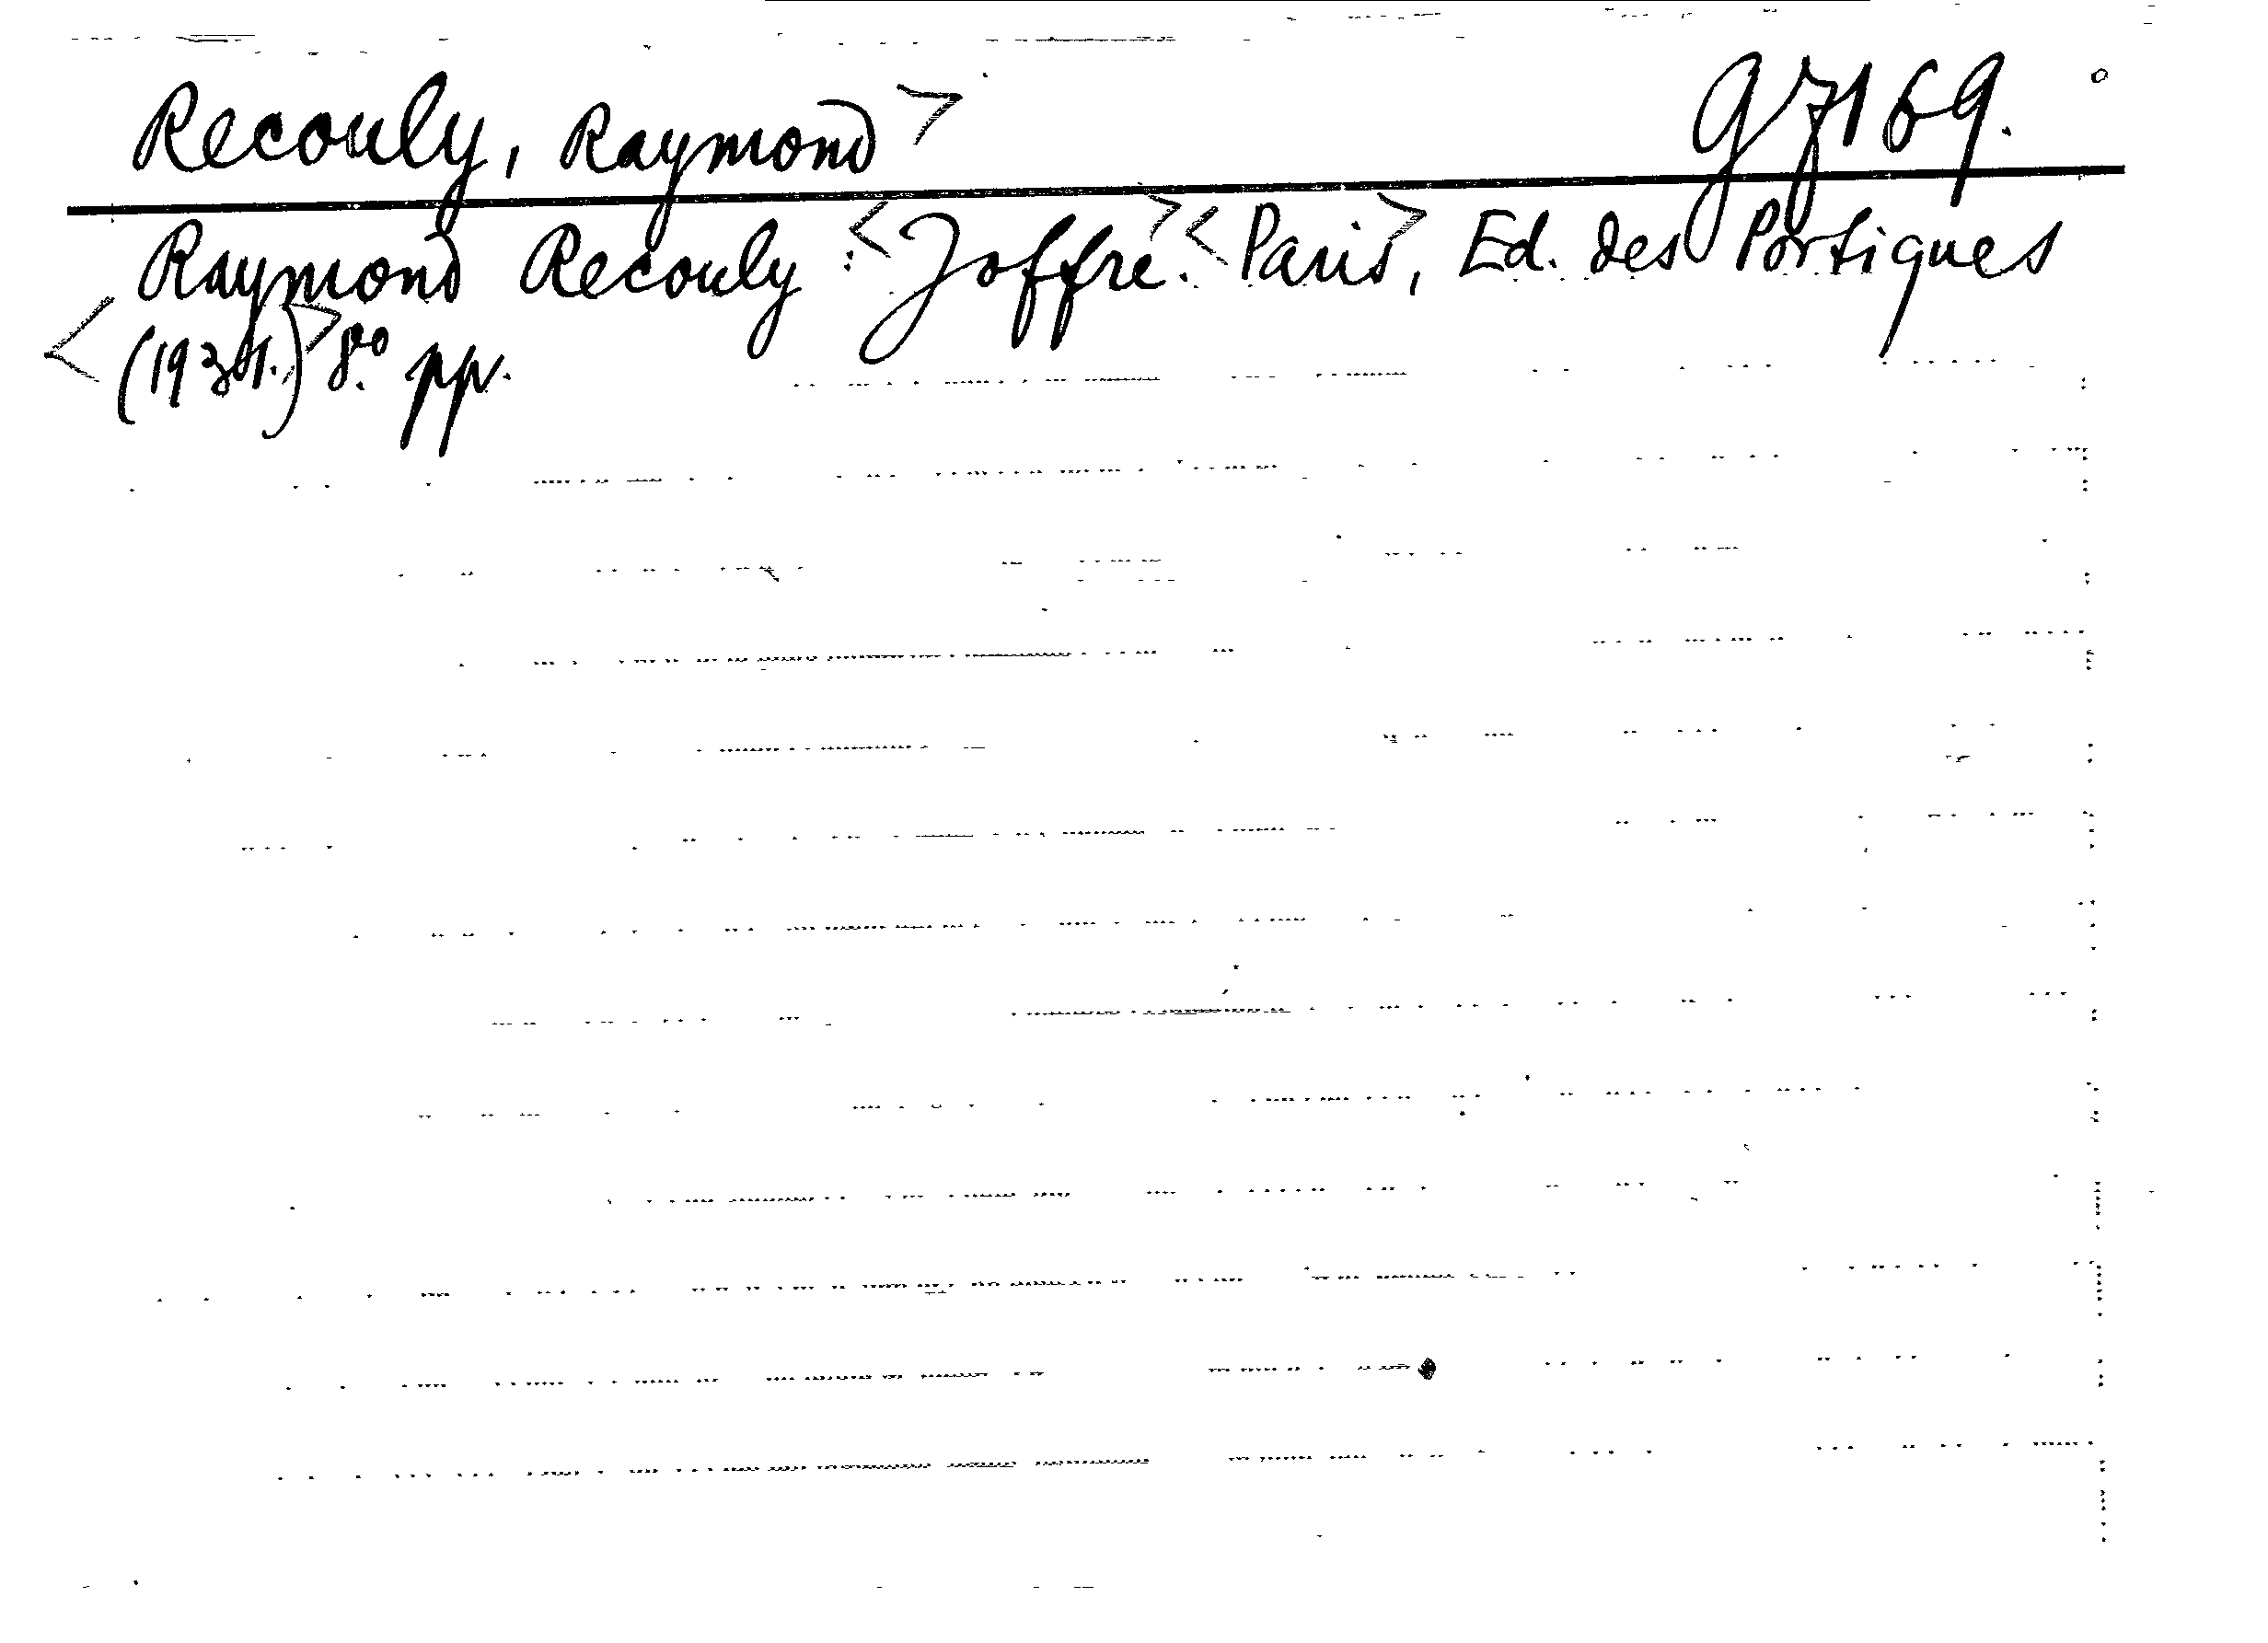 Recouly, Raymond> 97169.
Raymond Recouly: <Joffre.> <Paris>, Ed. des Portiques
<(1931.)> 8.° pp.